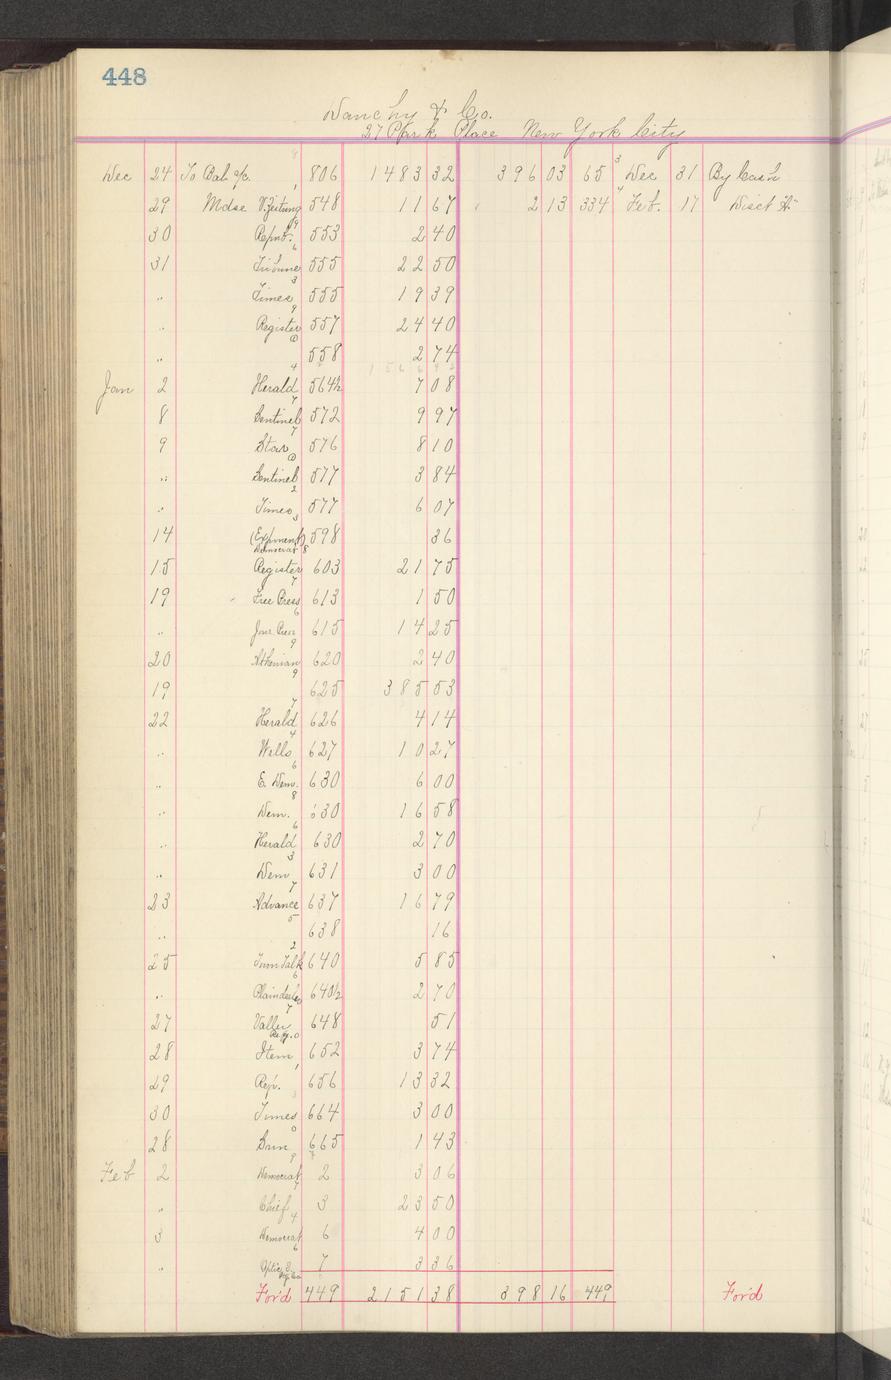 448
Danchy & Co.
27 Park Place New York City
Dec 24 To Bal a/c. 806 1483 32 396 03 65 Dec 31 By Cash
29 Mdse V. Zeitung 548 11 67 2 13 334 Feb. 17 Disct
30 Repub. 553 2 40
31 Tribune 555 22 50
" Times 555 19 39
" Register 557 24 40
" 558 2 74
Jan 2 Herald 564½ 7 08
8 Sentinel 572 9 97
9 Star 576 8 10
" Sentinel 577 3 84
" Times 577 6 07
14 (Exponent) Democrat 598 36
15 Register 603 21 75
19 Free Press 613 1 50
" 615 14 25
20 Athenian 620 2 40
19 625 385 53
22 Herald 626 4 14
" Wells 627 10 27
" E. Dem. 630 6 00
" Dem. 630 16 58
" Herald 630 2 70
" Dem 631 3 00
23 Advance 637 16 79
" 638 16
25 Town Talk 640 5 85
" Plaindealer 640½ 2 70
27 648 51
28 Item 652 3 74
29 Rep. 656 13 32
30 Times 664 3 00
28 Sun 665 1 43
Feb 2 Democrat 2 3 06
" Chief 3 23 50
3 Democrat 6 4 00
" Optic 7 3 36
For'd 449 2151 38 398 16 449 For'd